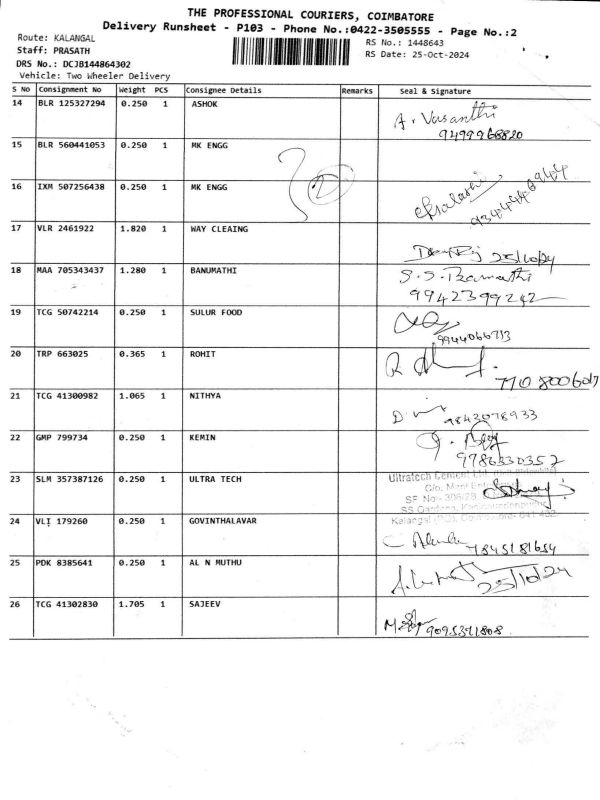 THE PROFESSIONAL COURIERS, COIMBATORE
Delivery Runsheet - P103 - Phone No.:0422-3505555 - Page No.:2
Route: KALANGAL
RS No.: 1448643
Staff: PRASATH
RS Date: 25-Oct-2024
DRS No.: DCJB144864302
Vehicle: Two Wheeler Delivery
S No Consignment No Weight PCS Consignee Details Remarks Seal & Signature
14 BLR 125327294 0.250 1 ASHOK A. Vasanthi
9499968820
15 BLR 560441053 0.250 1 MK ENGG
16 IXM 507256438 0.250 1 MK ENGG
17 VLR 2461922 1.820 1 WAY CLEAING
25/10/24
18 MAA 705343437 1.280 1 BANUMATHI S.S.
9942399242
19 TCG 50742214 0.250 1 SULUR FOOD
9944066713
20 TRP 663025 0.365 1 ROHIT
21 TCG 41300982 1.065 1 NITHYA
9843078933
22 GMP 799734 0.250 1 KEMIN
9786330357
23 SLM 357387126 0.250 1 ULTRA TECH Ultratech Cement Ltd.
24 VLI 179260 0.250 1 GOVINTHALAVAR
7845181654
25 PDK 8385641 0.250 1 AL N MUTHU
25/10/24
26 TCG 41302830 1.705 1 SAJEEV
9095371808